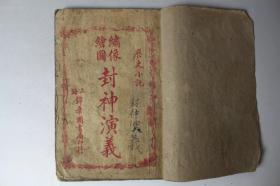 歷史小說
繡像
繪圖
封神演義
上海錦章圖書局印行
封神演義